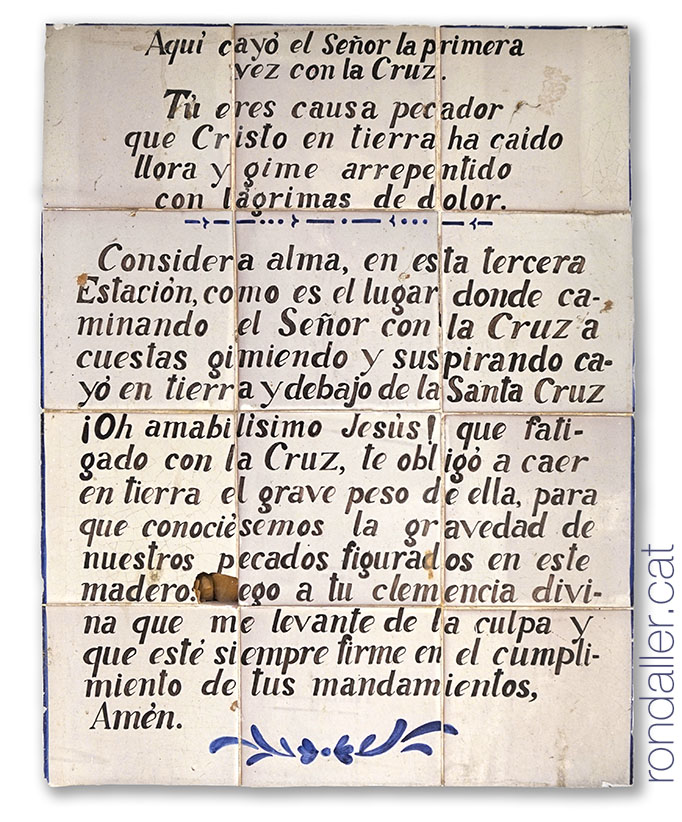 Aquí cayó el Señor la primera
vez con la Cruz.
Tú eres causa pecador
que Cristo en tierra ha caído
llora y gime arrepentido
con lágrimas de dolor.
Considera alma, en esta tercera
Estación, como es el lugar donde ca-
minando el Señor con la Cruz a
cuestas gimiendo y suspirando ca-
yó en tierra y debajo de la Santa Cruz
¡Oh amabilísimo Jesús! que fati-
gado con la Cruz, te obligó a caer
en tierra el grave peso de ella, para
que conociésemos la gravedad de
nuestros pecados figurados en este
madero: ego a tu clemencia divi-
na que me levante de la culpa y
que esté siempre firme en el cumpli-
miento de tus mandamientos,
Amén.
rondaller.cat